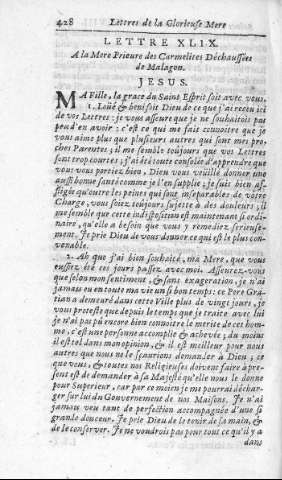 428 Lettres de la Glorieuse Mere
LETTRE XLIX.
A la Mere Prieure des Carmelites Déchaussées
de Malagon.
JESUS.
MA Fille, la grace du Saint Esprit soit avec vous.
1. Loüé & benisoit Dieu de ce que j'ai receu six
de vos Lettres: je vous asseure que je ne souhaitois pas
peu d'en avoir; c'est ce qui me fait connoitre que je
vous aime plus que plusieurs autres qui sont mes pro-
ches Parentes; il me semble toujours que vos Lettres
sont trop courtes; j'ai été toute consolée d'apprendre que
vous vous portiez bien, Dieu vous veuille donner une
aussi bonne santé comme je l'en supplie; je suis bien af-
fligée qu'outre les peines qui sont inseparables de votre
Charge, vous soiez toujours sujette à des douleurs; il
me semble que cette indisposition est maintenant si ordi-
naire, qu'elle a besoin que vous y remediez serieuse-
ment. Je prie Dieu de vous donner ce qui est le plus con-
venable.
2. Ah que j'ai bien souhaité, ma Mere, que vous
eussiez été ces jours passez avec moi. Asseurez-vous
que selon mon sentiment, & sans exageration, je n'ai
jamais eu en toute ma vie un si bon temps: ce Pere Gra-
tian a demeuré dans cette Ville plus de vingt jours, je
vous proteste que depuis le temps que je traite avec lui
je n'ai pas pû encore bien connoitre le merite de cet hom-
me, c'est une personne accomplie & achevée; du moins
il est tel dans mon opinion, & il est meilleur pour nous
autres que nous ne le sçaurions demander à Dieu; ce
que vous, & toutes nos Religieuses doivent faire à pre-
sent est de demander à sa Majesté qu'elle nous le donne
pour Superieur, car par ce moien je me pourrai déchar-
ger sur lui du Gouvernement de nos Maisons. Je n'ai
jamais veu tant de perfection accompagnée d'une si
grande douceur. Je prie Dieu de le tenir de sa main, &
de le conserver. Je ne voudrois pas pour tout ce qu'il y a
dans